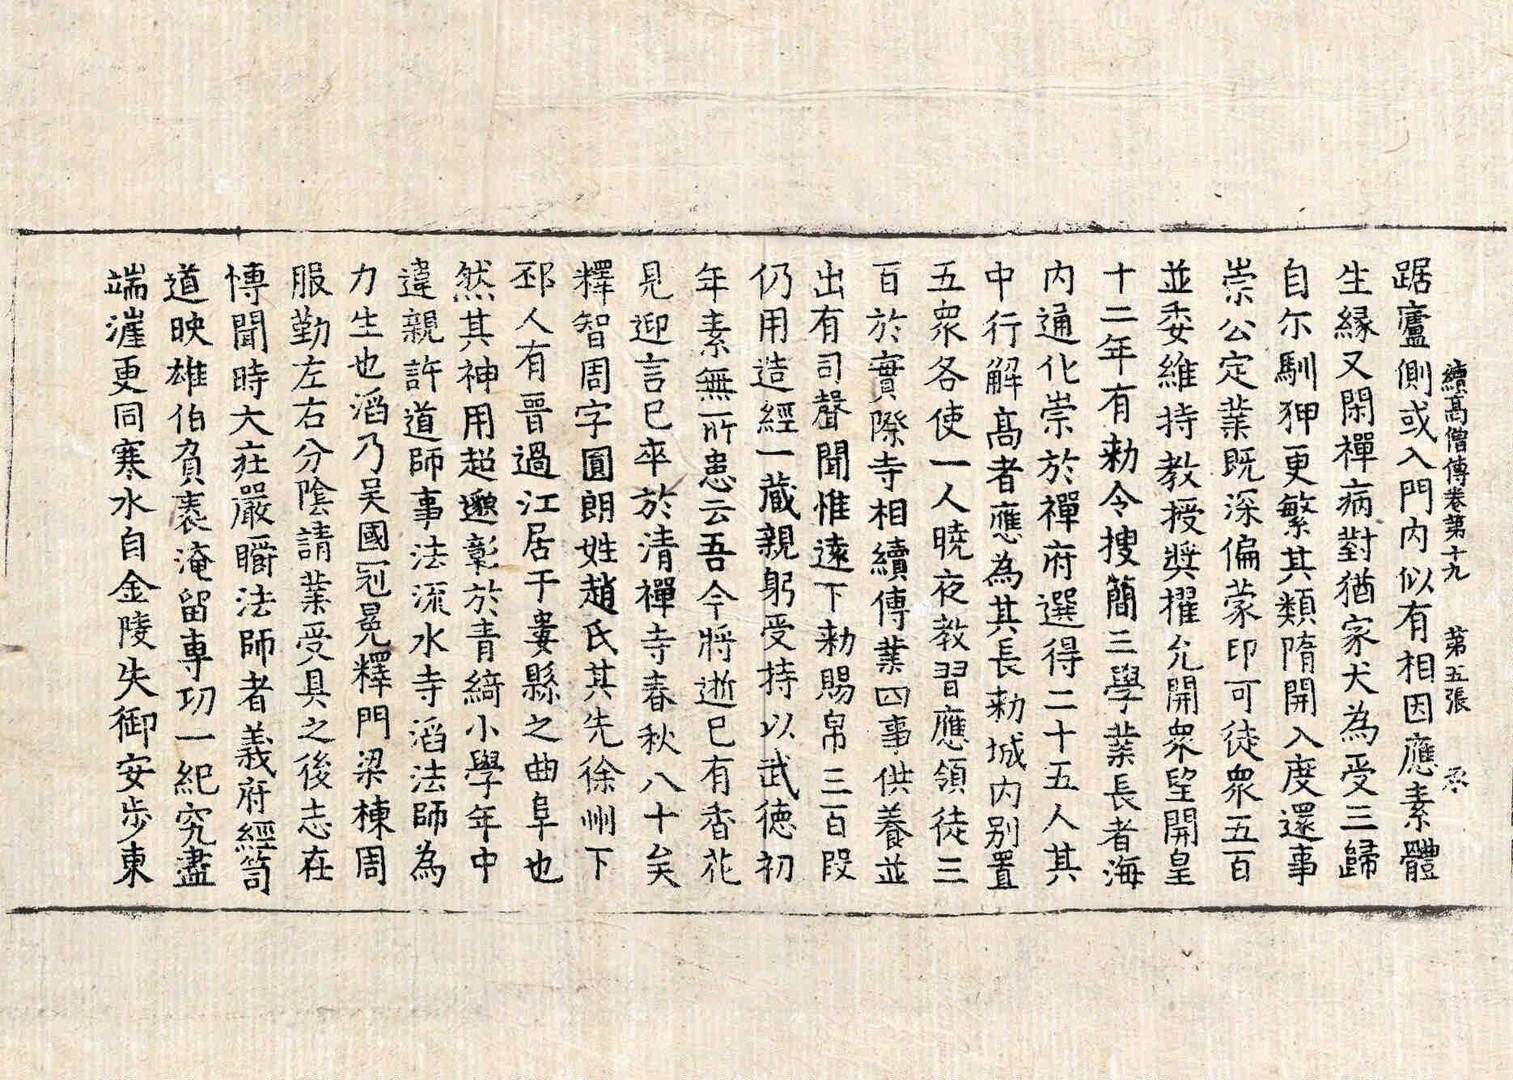 續高僧傳卷第十九 第五張
踞廬側或入門內似有相因應素體
生緣又閑禪病對猶家犬為受三歸
自尒馴狎更繁其類隋開入度還事
崇公定業既深偏蒙印可徒眾五百
並委維持教授獎擢允開眾望開皇
十二年有勑令搜簡三學業長者海
內通化崇於禪府選得二十五人其
中行解高者應為其長勑城內別置
五眾各使一人曉夜教習應領徒三
百於實際寺相續傳業四事供養並
出有司聲聞惟遠下勑賜帛三百段
仍用造經一藏親躬受持以武德初
年素無所患云吾今將逝已有香花
見迎言已卒於清禪寺春秋八十矣
釋智周字圓朗姓趙氏其先徐州下
邳人有晉過江居于婁縣之曲阜也
然其神用超邈彰於青綺小學年中
違親許道師事法流水寺滔法師為
力生也滔乃吳國冠冕釋門梁棟周
服勤左右分陰請業受具之後志在
博聞時大莊嚴㬭法師者義府經笥
道映雄伯負袠淹留專功一紀究盡
端漄更同寒水自金陵失御安步東